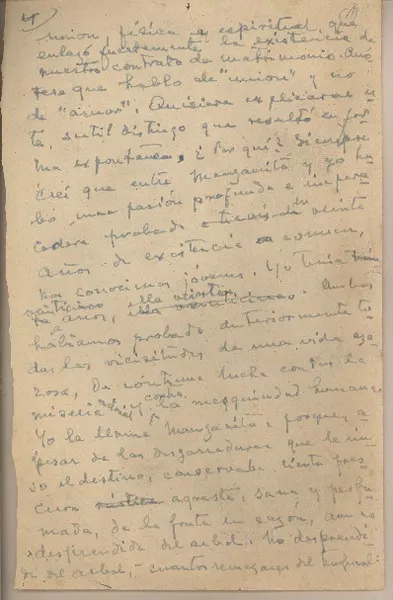 unión, física y espiritual, que
enlazó fuertemente la existencia de
nuestro contrato de matrimonio. Ano-
tese que hablo de "unión" y no
de "amor". Quisiera explicarme es-
ta, sutil distingo que resultó en for-
ma expontánea. ¿Por qué? Siempre
creí que entre Manzanita y yo hu-
bo una pasión profunda e impere-
cedera probada a través de veinte
años de existencia en común.
Nos conocimos jovenes. Yo tenía
años, ella Ambos
habíamos probado anteriormente to-
das las vicisitudes de una vida aza-
rosa, de contínua lucha contra la
miseria y contra la mezquindad humana.
Yo la llamé Manzanita: porque, a
pesar de las desgarraduras que le im-
puso el destino, conservaba cierta fres-
cura rústica agreste, sana y perfu-
mada, de la fruta en sazón, aún no
desprendida del arbol. No desprendi-
da del arbol, - cuantos remezones del